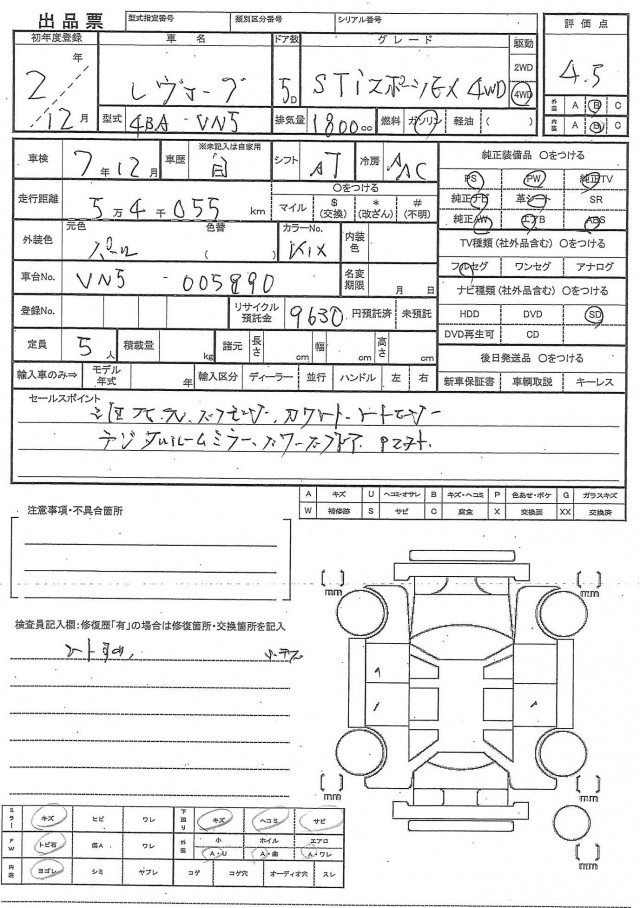 出品票 型式指定番号 類別区分番号 シリアル番号
初年度登録 車名 ドア数 グレード 駆動 評価点
2年12月 レヴォーグ 5D STiスポーツEX 4WD 2WD 4WD 4.5
型式 4BA-VN5 排気量 1800cc 燃料 ガソリン 軽油 ( )
外装 A B C D E
内装 A B C D E
車検 7年12月 車歴 ※未記入は自家用 自 シフト AT 冷房 AAC
純正装備品 ○をつける
PS PW 純正TV
純正ナビ 革シート SR
純正AW エアB ABS
走行距離 5万4千055km ○をつける
マイル $(交換) *(改ざん) #(不明)
外装色 元色 パール 色替 ( ) カラーNo. 内装色
TV種類(社外品含む) ○をつける
フルセグ ワンセグ アナログ
車台No. VN5-005890 名変期限 月 日
ナビ種類(社外品含む) ○をつける
HDD DVD SD
DVD再生可 CD
登録No. リサイクル預託金 9630 円預託済 未預託
定員 5人 積載量 kg 諸元 長さ cm 幅 cm 高さ cm
後日発送品 ○をつける
新車保証書 車輌取説 キーレス
輸入車のみ⇒ モデル年式 年 輸入区分 ディーラー 並行 ハンドル 左 右
セールスポイント
デジタルルームミラー、パワーバックドア
A キズ U ヘコミ・オサレ B キズ・ヘコミ P 色あせ・ボケ G ガラスキズ
W 補修跡 S サビ C 腐食 X 交換要 XX 交換済
注意事項・不具合箇所
検査員記入欄:修復歴「有」の場合は修復箇所・交換箇所を記入
mm mm
A
A
mm mm
mm
ミラー キズ ヒビ ワレ 下回り キズ ヘコミ サビ
FW トビ石 傷A ワレ 外装 小 A・U ホイル A・曲 エアロ A・ワレ
内装 ヨゴレ シミ ヤブレ コゲ コゲ穴 オーディオ穴 スレ